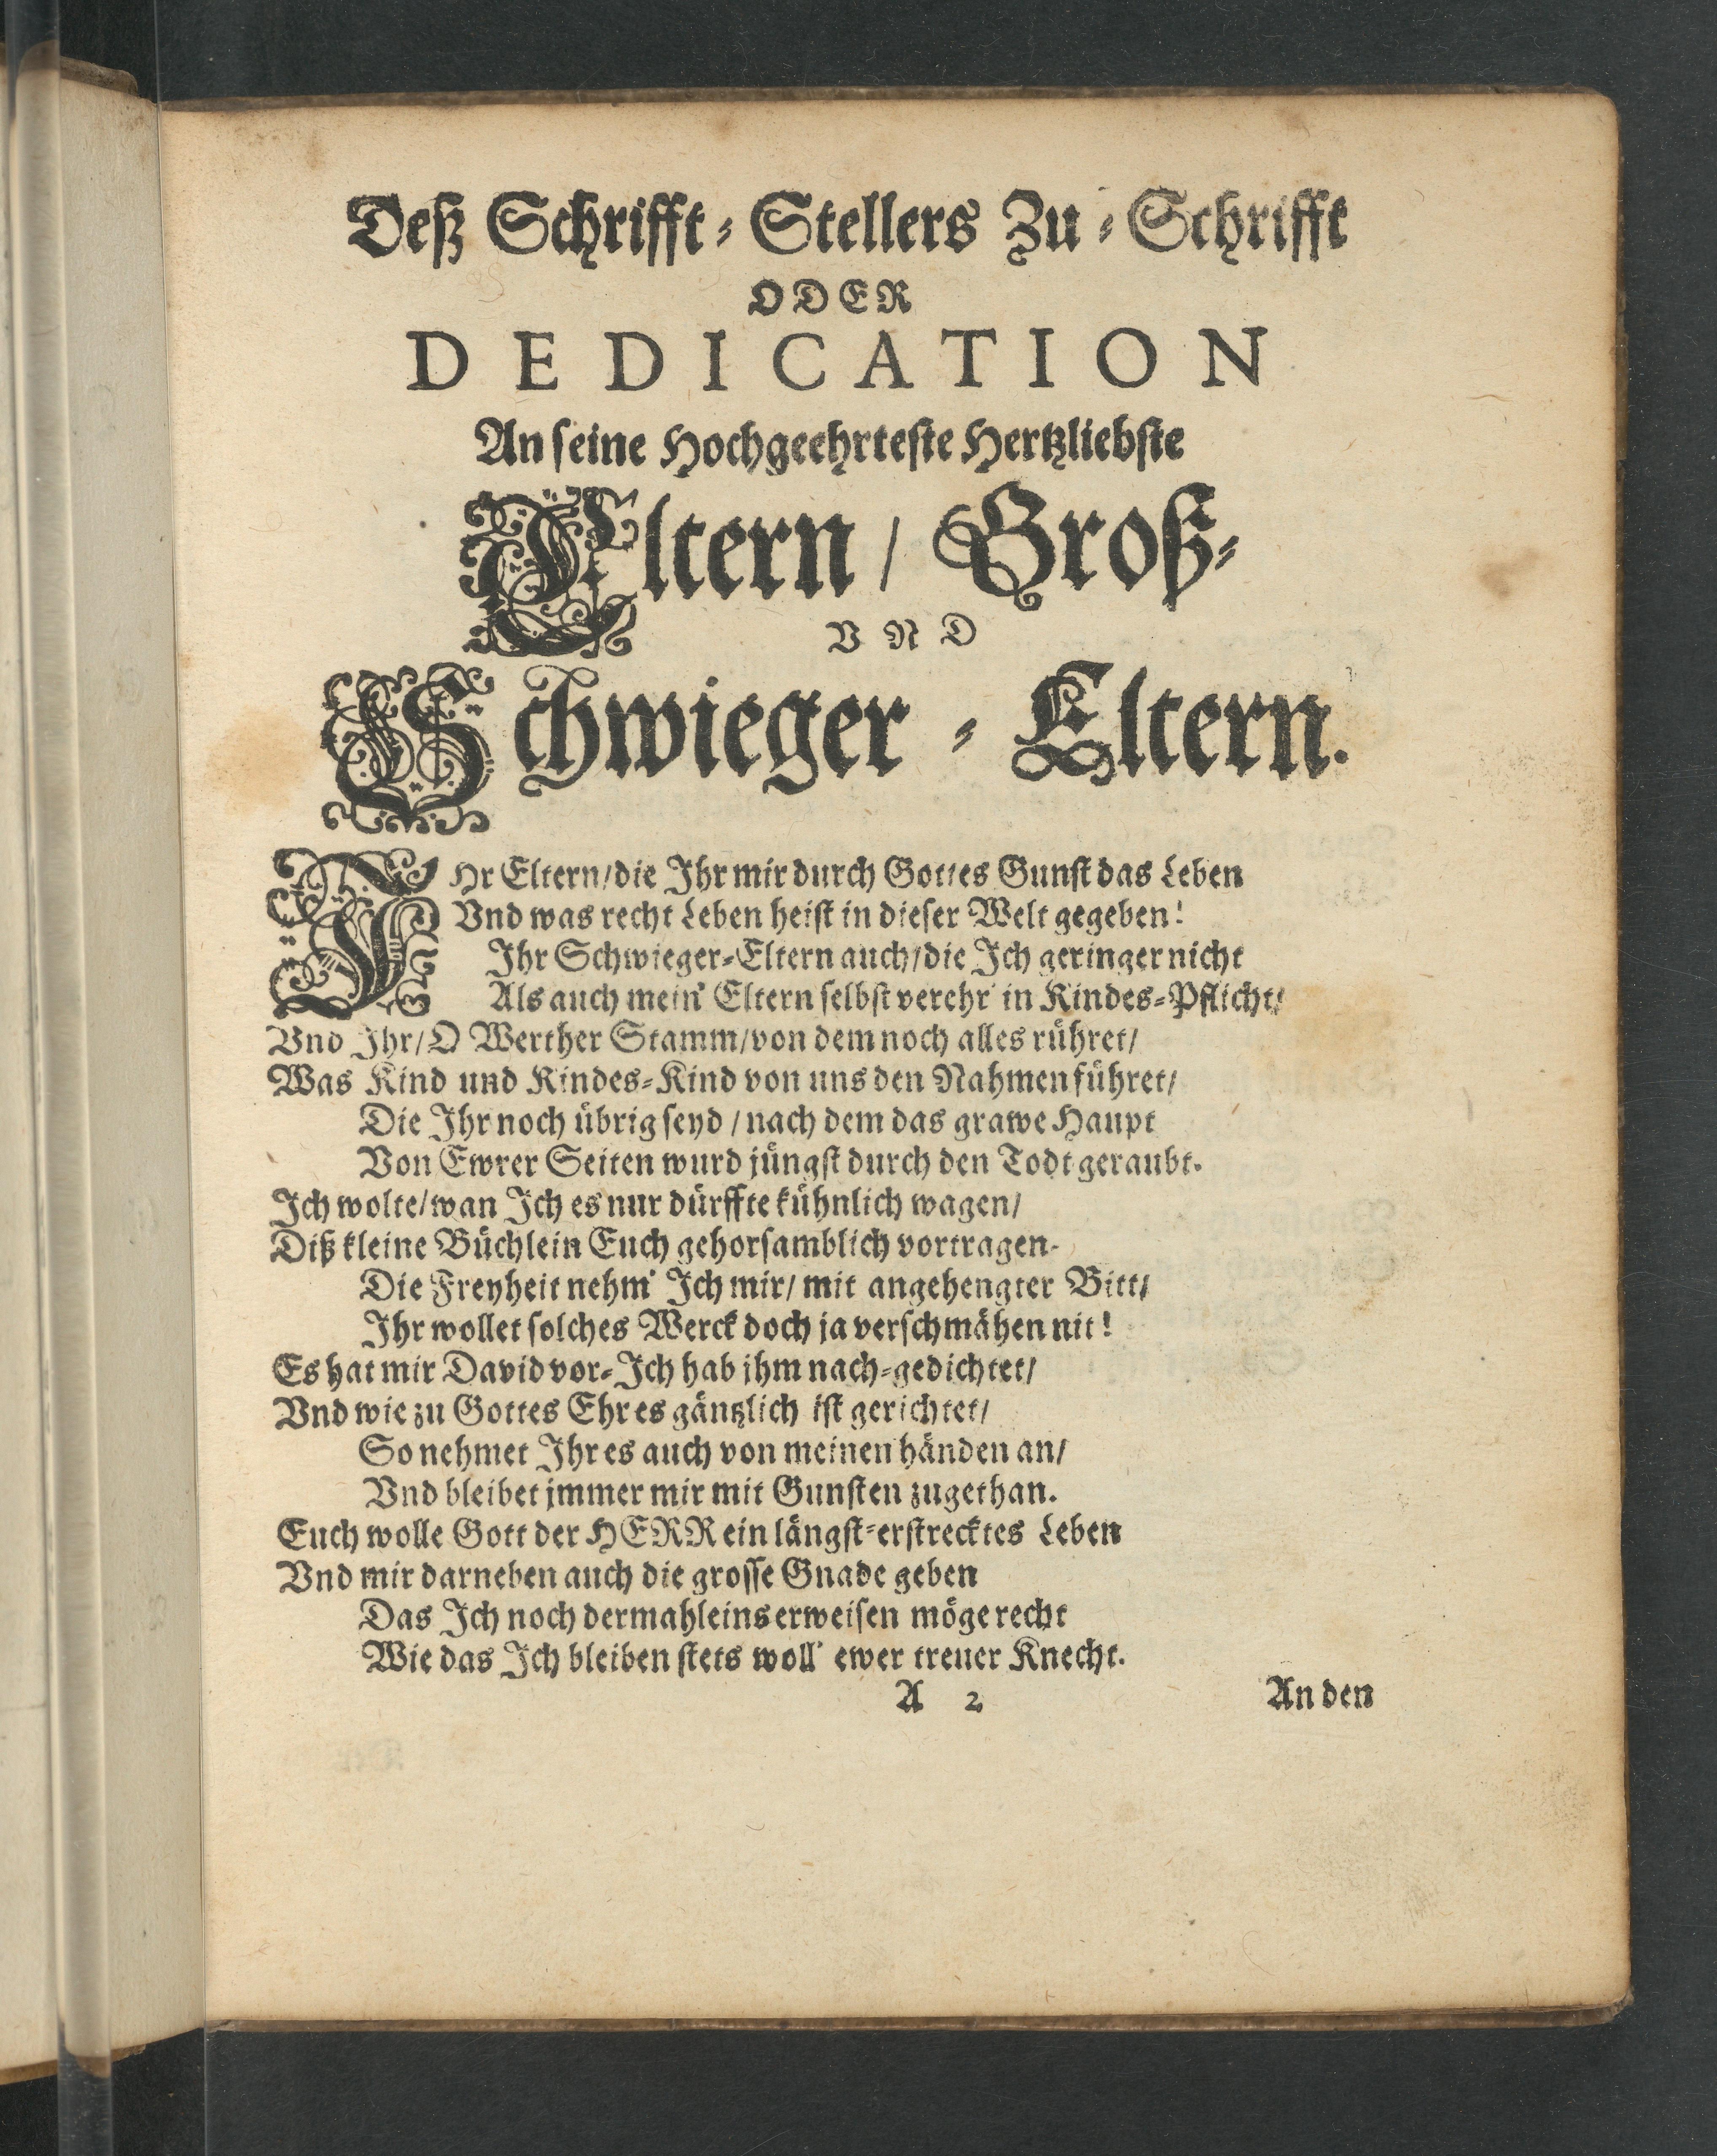 Deß Schrifft-Stellers Zu-Schrifft
ODER
DEDICATION
An seine Hochgeehrteste Hertzliebste
Eltern / Groß-
VND
Schwieger-Eltern.
IHr Eltern/die Ihr mir durch Gottes Gunst das Leben
Vnd was recht Leben heist in dieser Welt gegeben!
Ihr Schwieger-Eltern auch/die Ich geringer nicht
Als auch mein' Eltern selbst verehr' in Kindes-Pflicht/
Vnd Ihr/O Werther Stamm/von dem noch alles rühret/
Was Kind und Kindes-Kind von uns den Nahmen führet/
Die Ihr noch übrig seyd / nach dem das grawe Haupt
Von Ewrer Seiten wurd jüngst durch den Todt geraubt.
Ich wolte/wan Ich es nur dürffte kühnlich wagen/
Diß kleine Büchlein Euch gehorsamblich vortragen.
Die Freyheit nehm' Ich mir/ mit angehengter Bitt/
Ihr wollet solches Werck doch ja verschmähen nit!
Es hat mir David vor-Ich hab ihm nach-gedichtet/
Vnd wie zu Gottes Ehr es gäntzlich ist gerichtet/
So nehmet Ihr es auch von meinen händen an/
Vnd bleibet jmmer mir mit Gunsten zugethan.
Euch wolle Gott der HERR ein längst-erstrecktes Leben
Vnd mir darneben auch die grosse Gnade geben
Das Ich noch dermahleins erweisen möge recht
Wie das Ich bleiben stets woll' ewer treuer Knecht.
A 2 An den